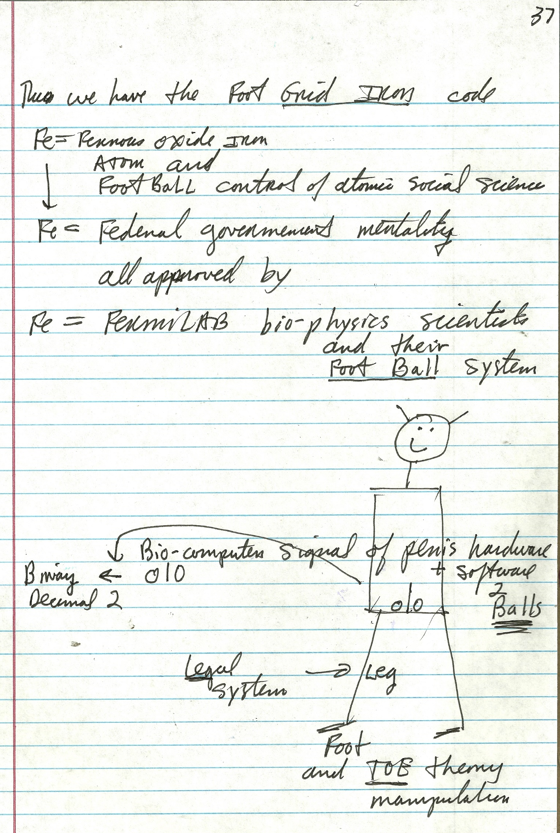 37
Thus we have the Foot Grid Iron code
Fe = Ferrous oxide Iron
Atom and
FootBall control of atomic social science
Fe = Federal government mentality
all approved by
Fe = FermiLAB bio-physics scientists
and their
Foot Ball system
Bio-computer signal of penis hardware
+ software
Binary ← 010
Decimal 2
2
Balls
010
Legal → Leg
system
Foot
and TOE theory
manipulation